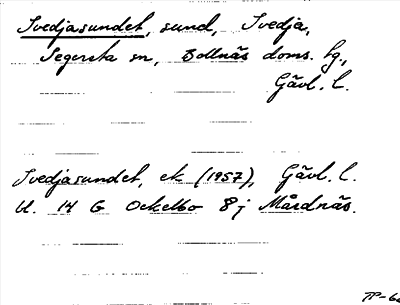 Svedjasundet, sund, Svedja,
Segersta sn, Bollnäs doms. tg.,
Gävl. l.
Svedjasundet, ek (1957), Gävl. l.
bl. 14 G Ockelbo 8 j Mårdnäs.